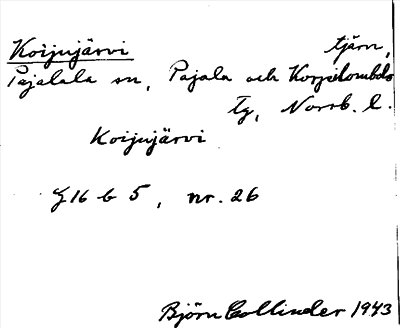 Koijujärvi tjärn,
Pajala sn, Pajala och Korpilombolo
tg, Norrb. l.
Koijujärvi
16 b 5, nr. 26
Björn Collinder 1943